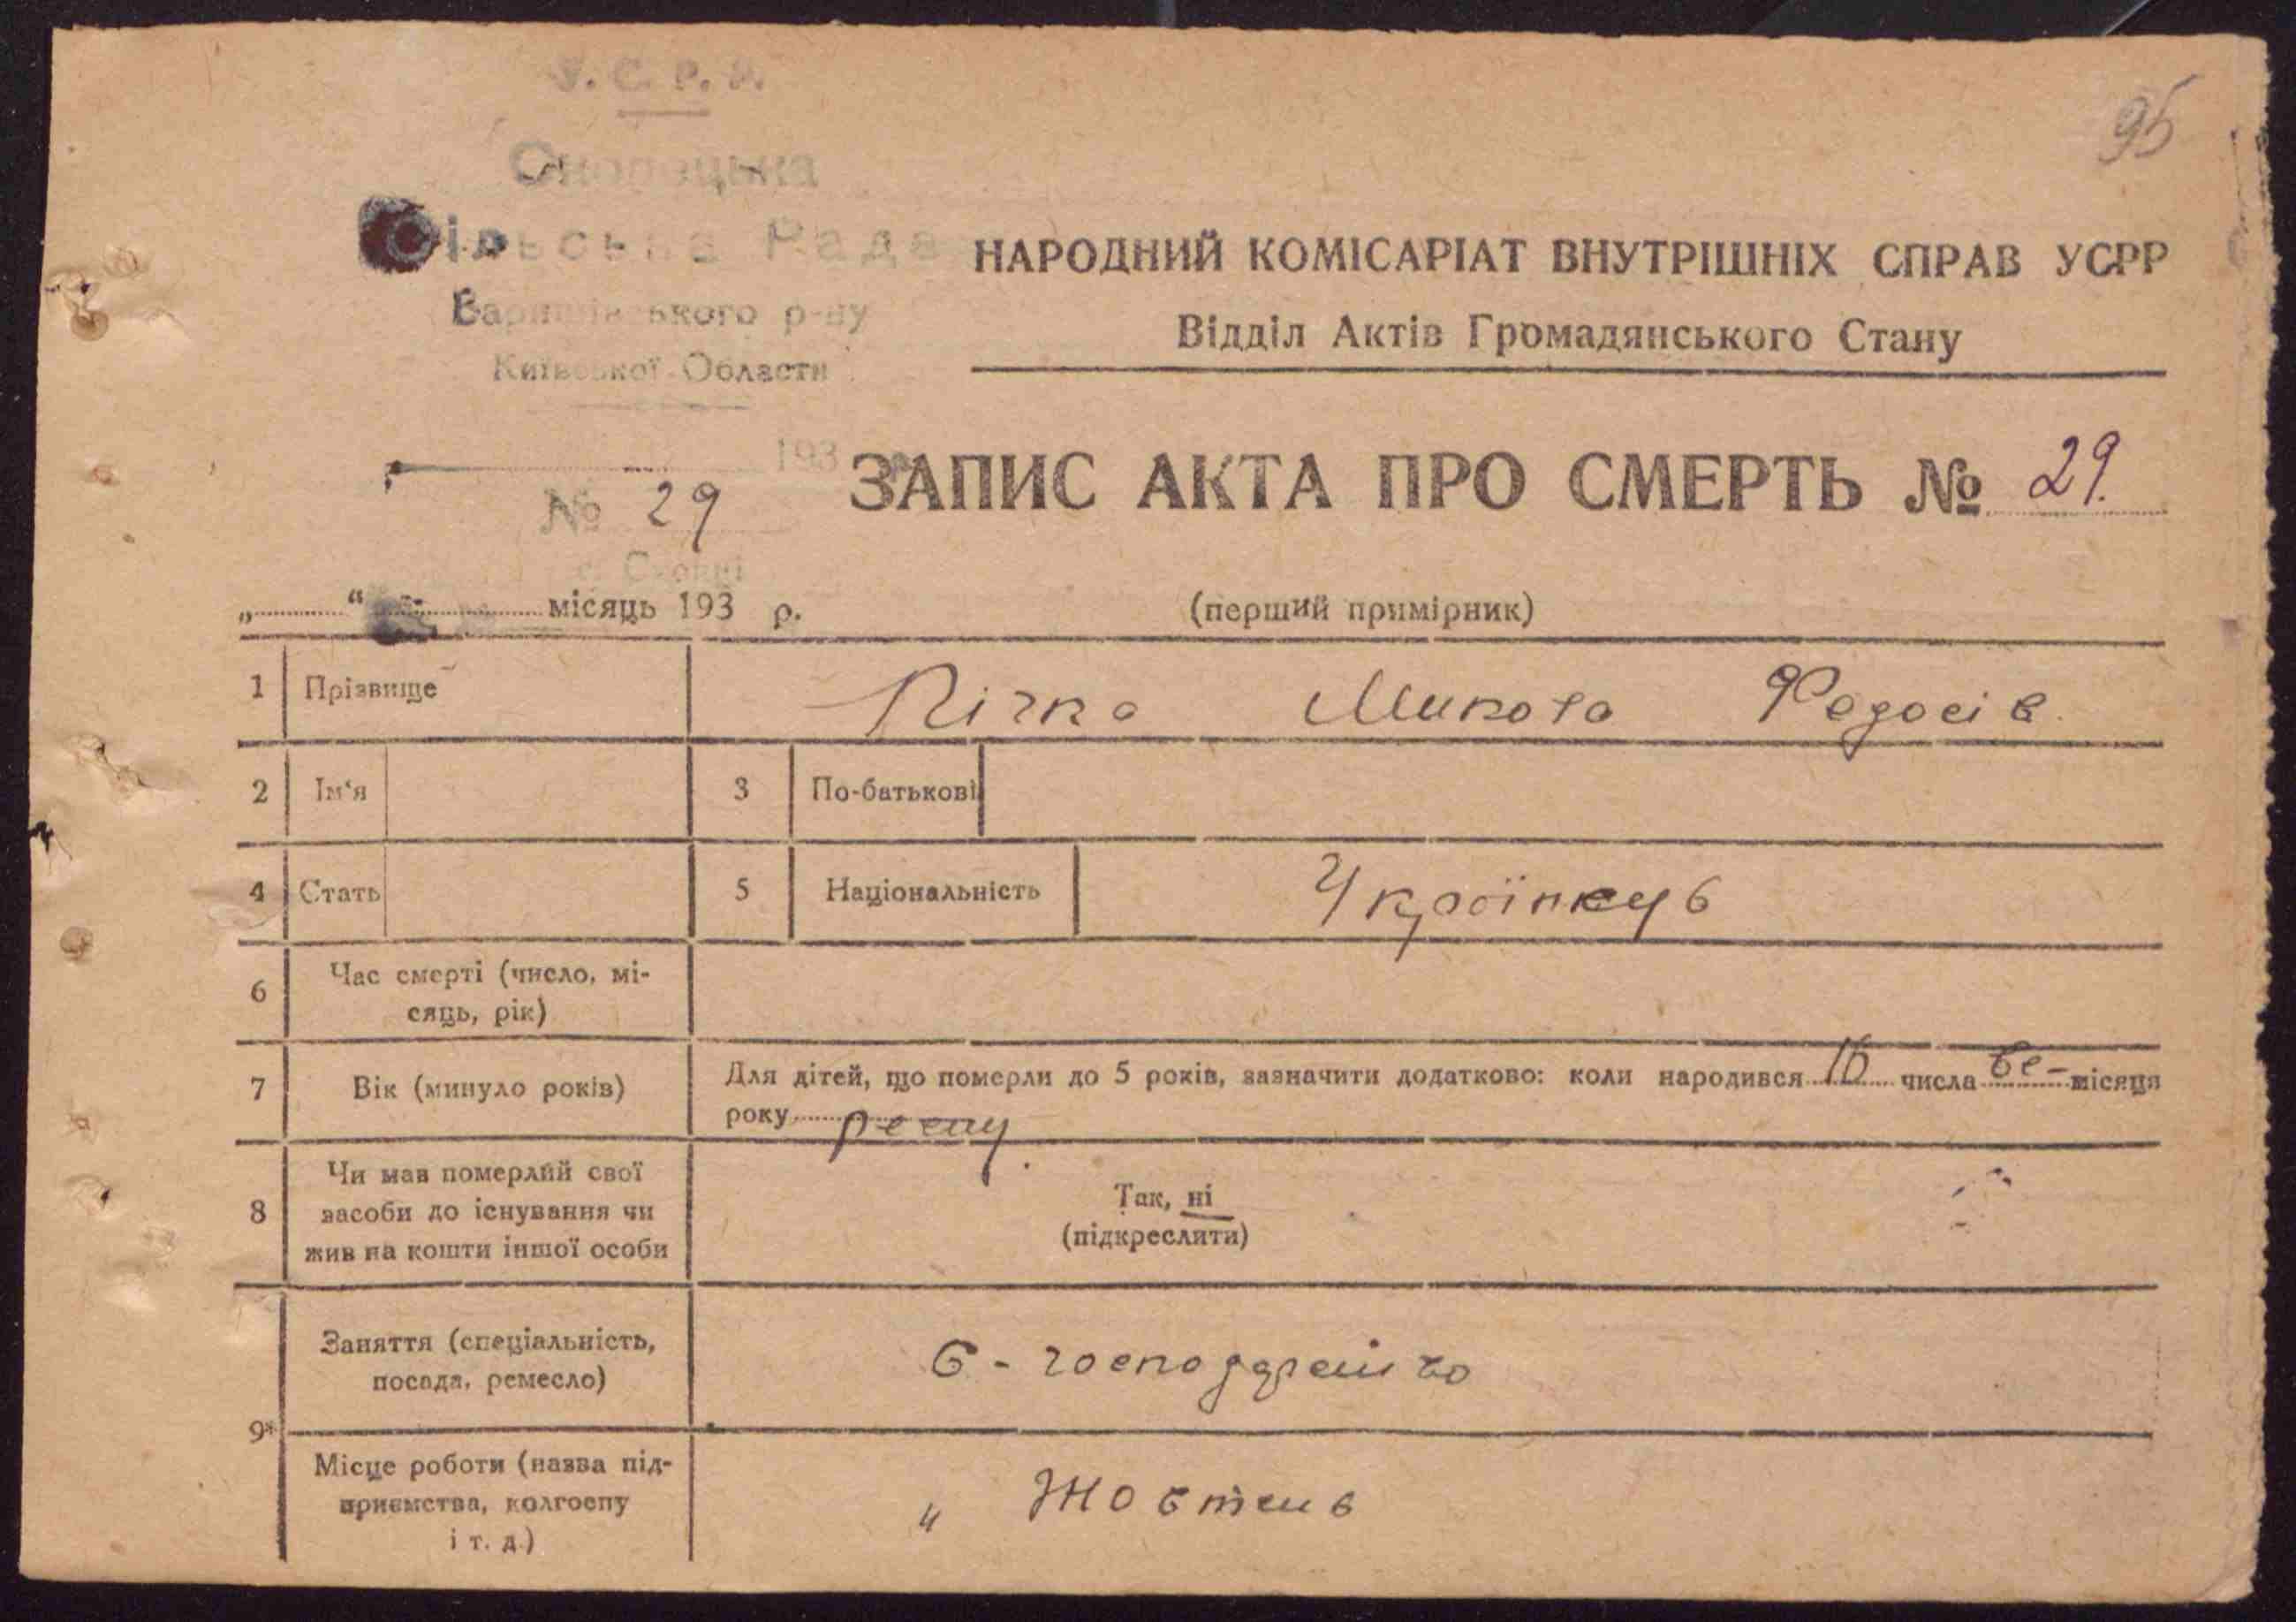 У. С. Р. Р.
95
Сільська Рада
НАРОДНИЙ КОМІСАРІАТ ВНУТРІШНІХ СПРАВ УСРР
Баришівського р-ну
Відділ Актів Громадянського Стану
Київської Области
193
ЗАПИС АКТА ПРО СМЕРТЬ № 29.
№ 29
„ “ місяць 193 р.
(перший примірник)
1 Прізвище Лічка Микола Федосів
2 Ім'я 3 По-батькові
4 Стать 5 Національність
6 Час смерті (число, мі-
сяць, рік)
7 Вік (минуло років) Для дітей, що померли до 5 років, зазначити додатково: коли народився 16 числа ве- місяця
року ресну
8 Чи мав померлий свої
засоби до існування чи
жив на кошти іншої особи
Так, ні
(підкреслити)
9*
Заняття (спеціальність,
посада, ремесло)
Місце роботи (назва під-
приємства, колгоспу
і т. д.)